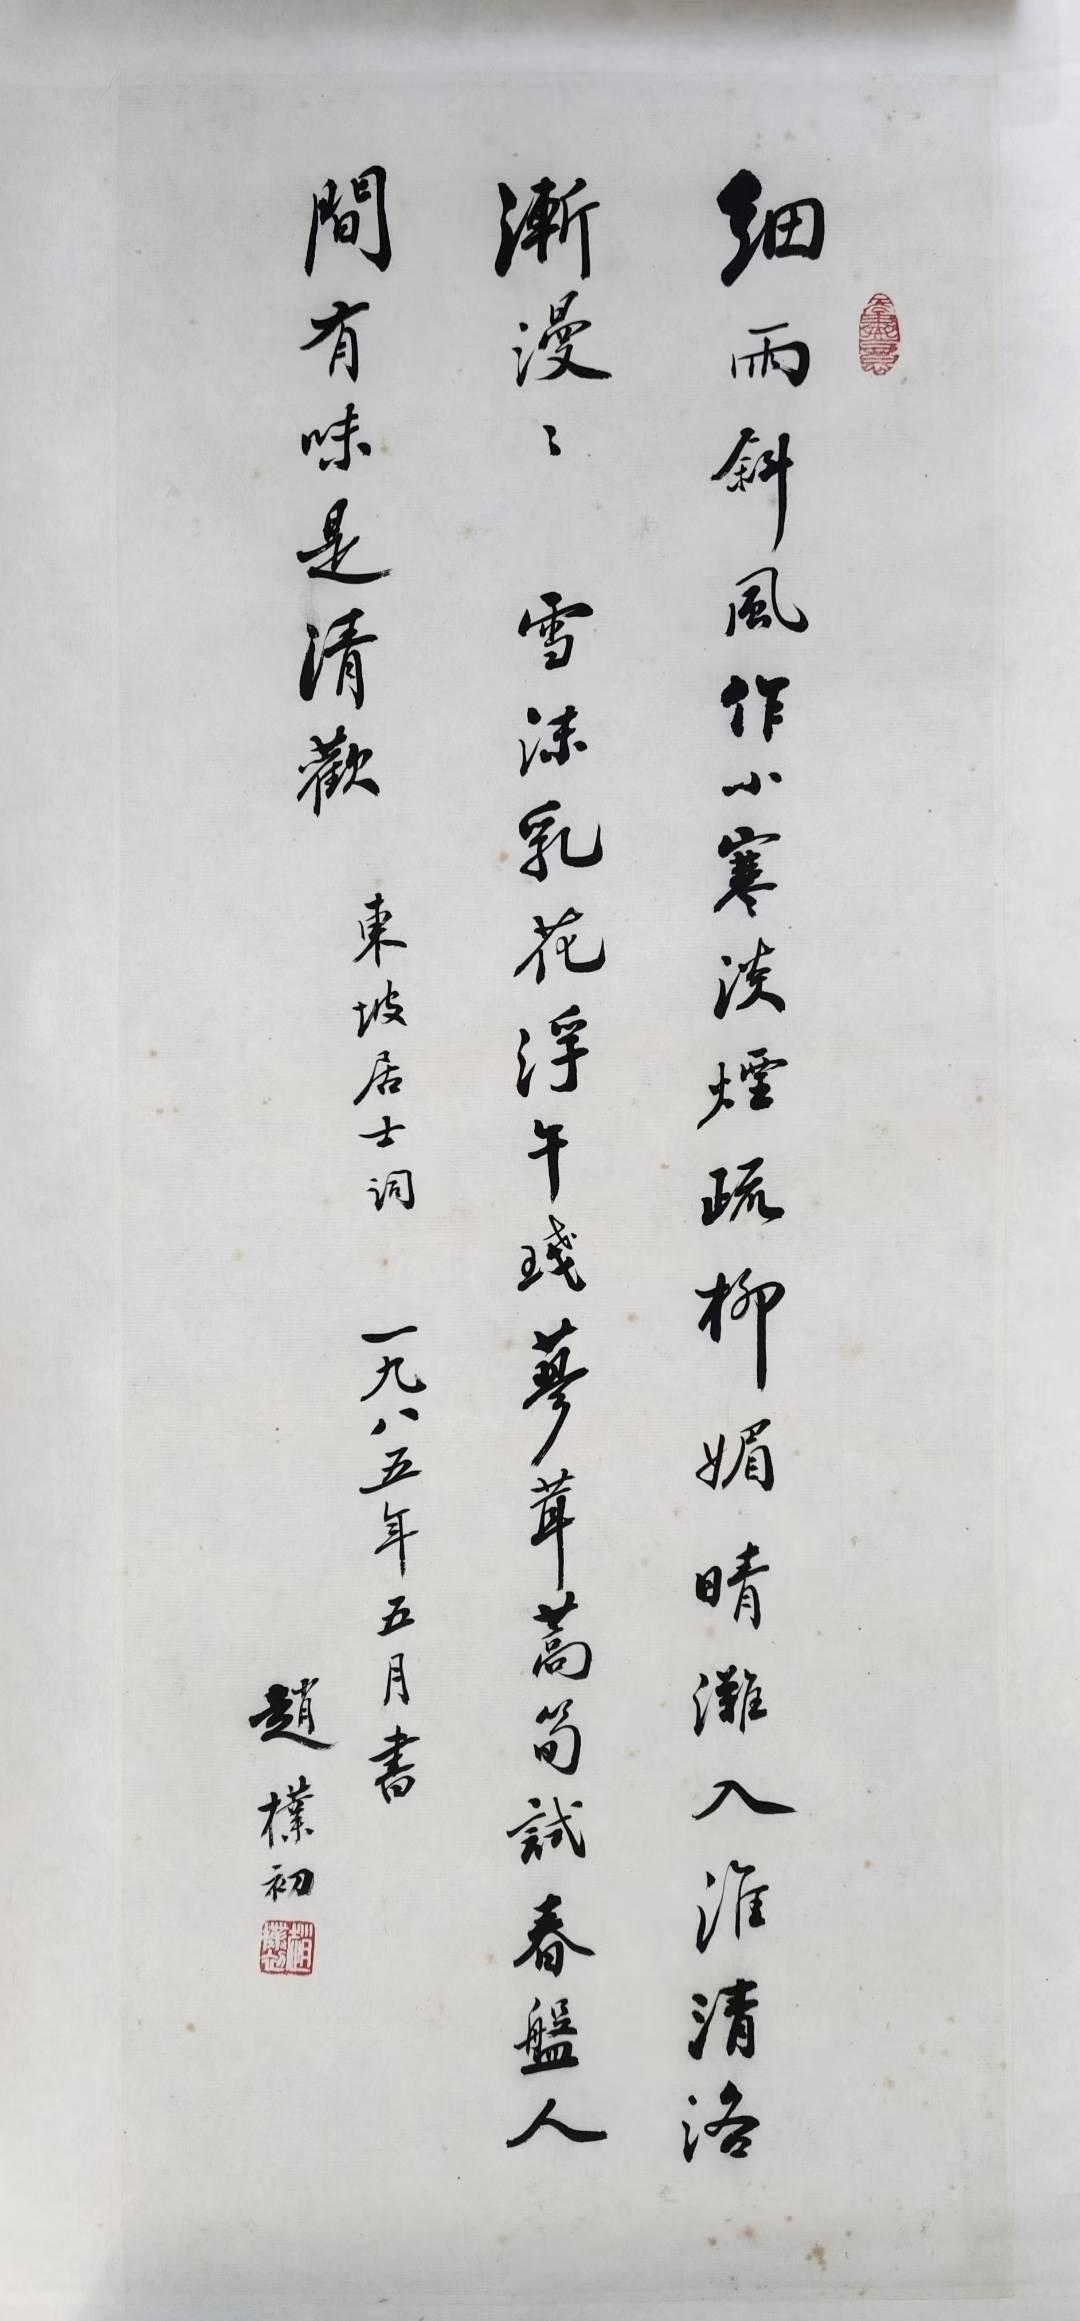 細雨斜風作小寒淡煙疏柳媚晴灘入淮清洛
漸漫〻 雪沫乳花浮午琖蓼茸蒿筍試春盤人
間有味是清歡
東坡居士詞 一九八五年五月書
趙樸初
趙樸初